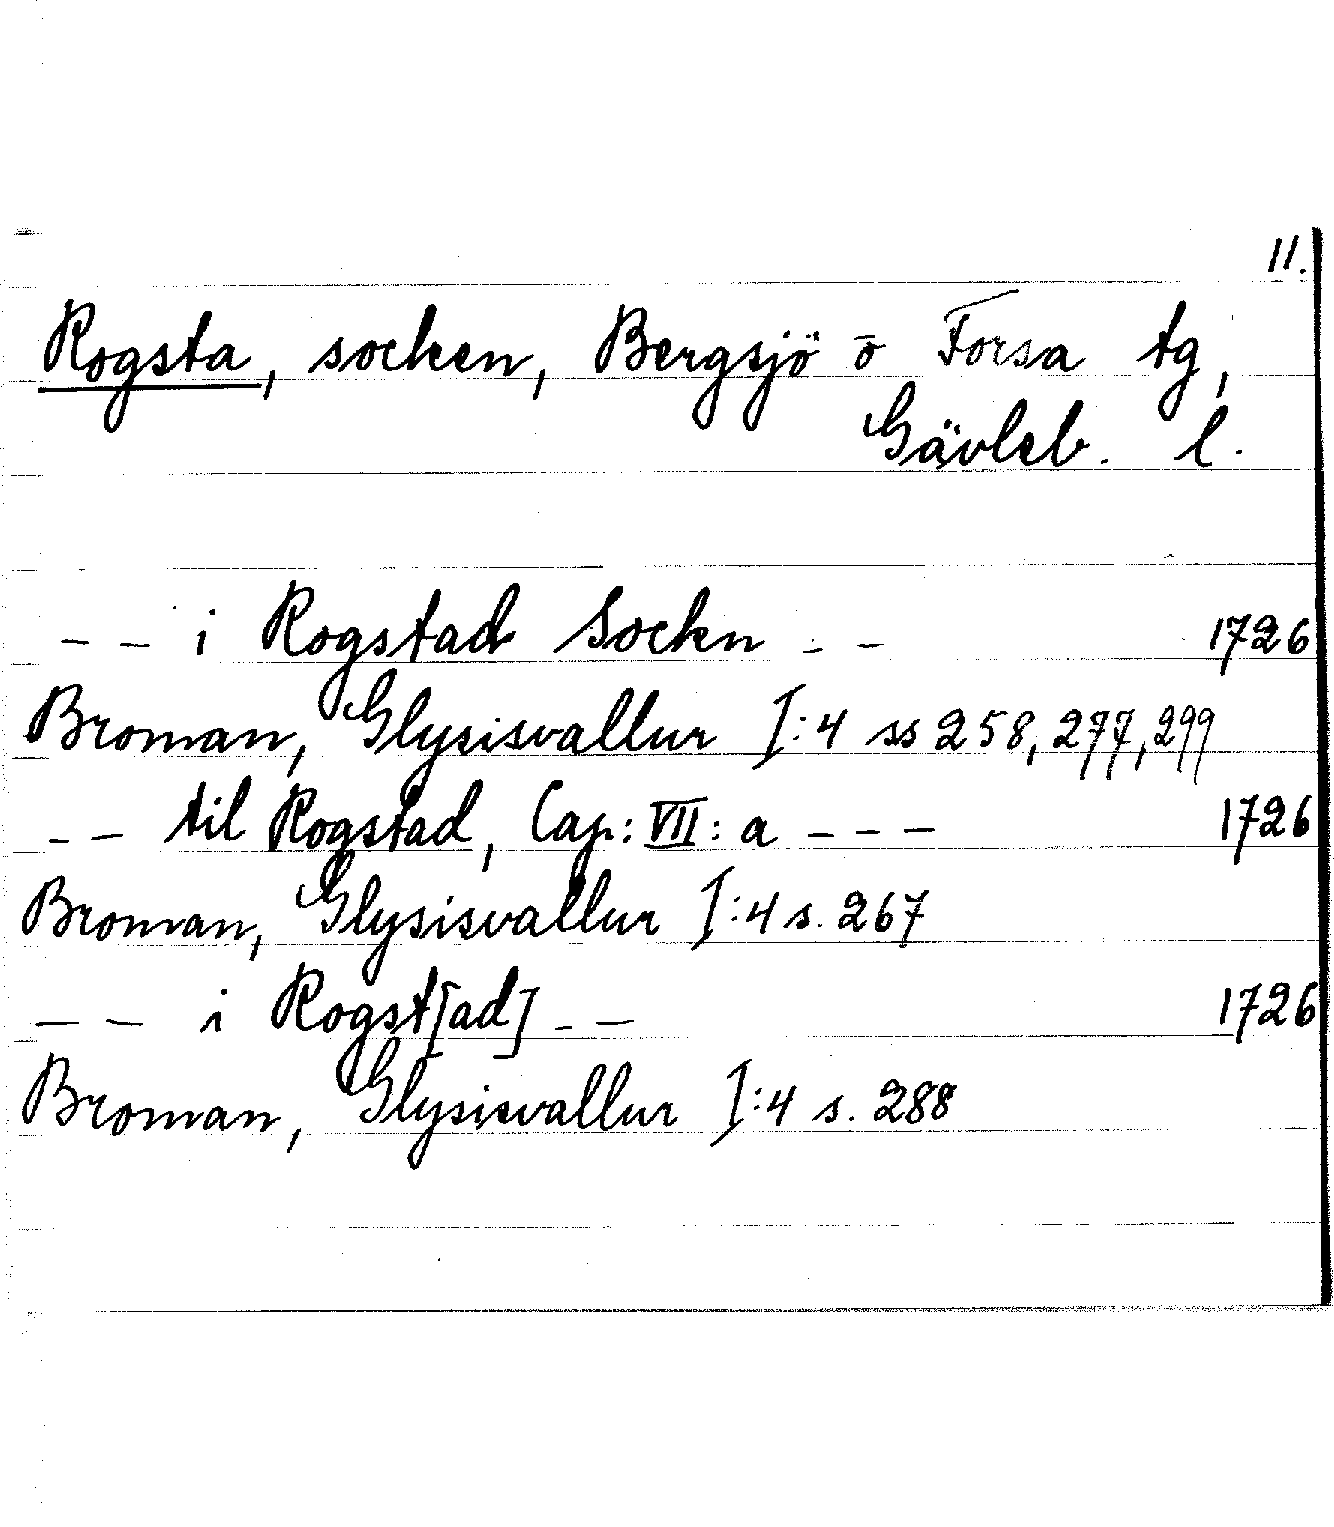 11.
Rogsta, socken, Bergsjö o Forsa tg,
Gävleb. l.
– – i Rogstad Sockn – – 1726
Broman, Glysisvallur I:4 ss 258, 277, 299
– – til Rogstad, Cap: VII: a – – – 1726
Broman, Glysisvallur I:4 s. 267
– – i Rogst[ad] – – 1726
Broman, Glysisvallur I:4 s. 288